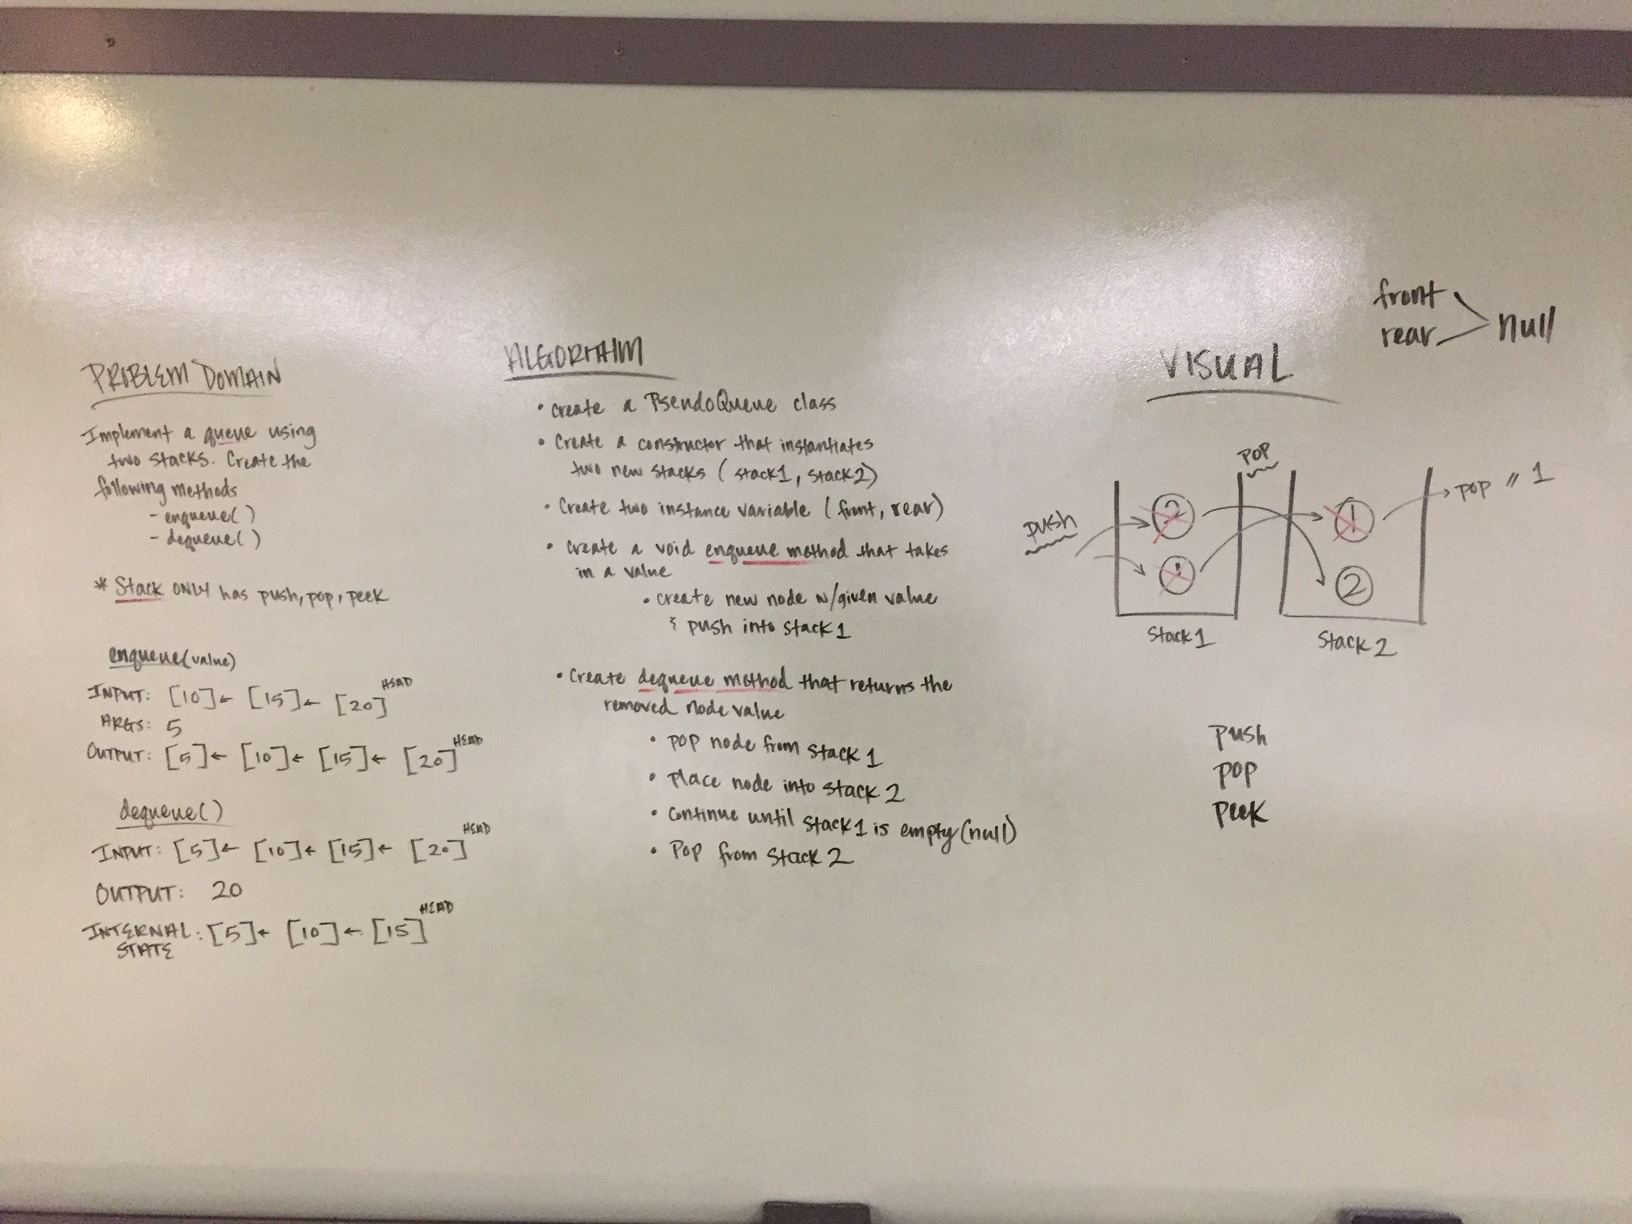 PROBLEM DOMAIN
Implement a queue using
two stacks. Create the
following methods
- enqueue( )
- dequeue( )
* Stack ONLY has push, pop, peek
enqueue(value)
INPUT: [10] ← [15] ← [20] HEAD
ARGS: 5
OUTPUT: [5] ← [10] ← [15] ← [20] HEAD
dequeue( )
INPUT: [5] ← [10] ← [15] ← [20] HEAD
OUTPUT: 20
INTERNAL STATE: [5] ← [10] ← [15] HEAD
ALGORITHM
• create a PseudoQueue class
• Create a constructor that instantiates
two new stacks (stack1, stack2)
• Create two instance variable (front, rear)
• Create a void enqueue method that takes
in a value
• create new node w/given value
& push into stack 1
• Create dequeue method that returns the
removed node value
• pop node from stack 1
• Place node into stack 2
• Continue until stack1 is empty (null)
• Pop from stack 2
front
rear
null
VISUAL
push
pop
2
1
1
2
pop // 1
Stack1
Stack 2
push
pop
peek